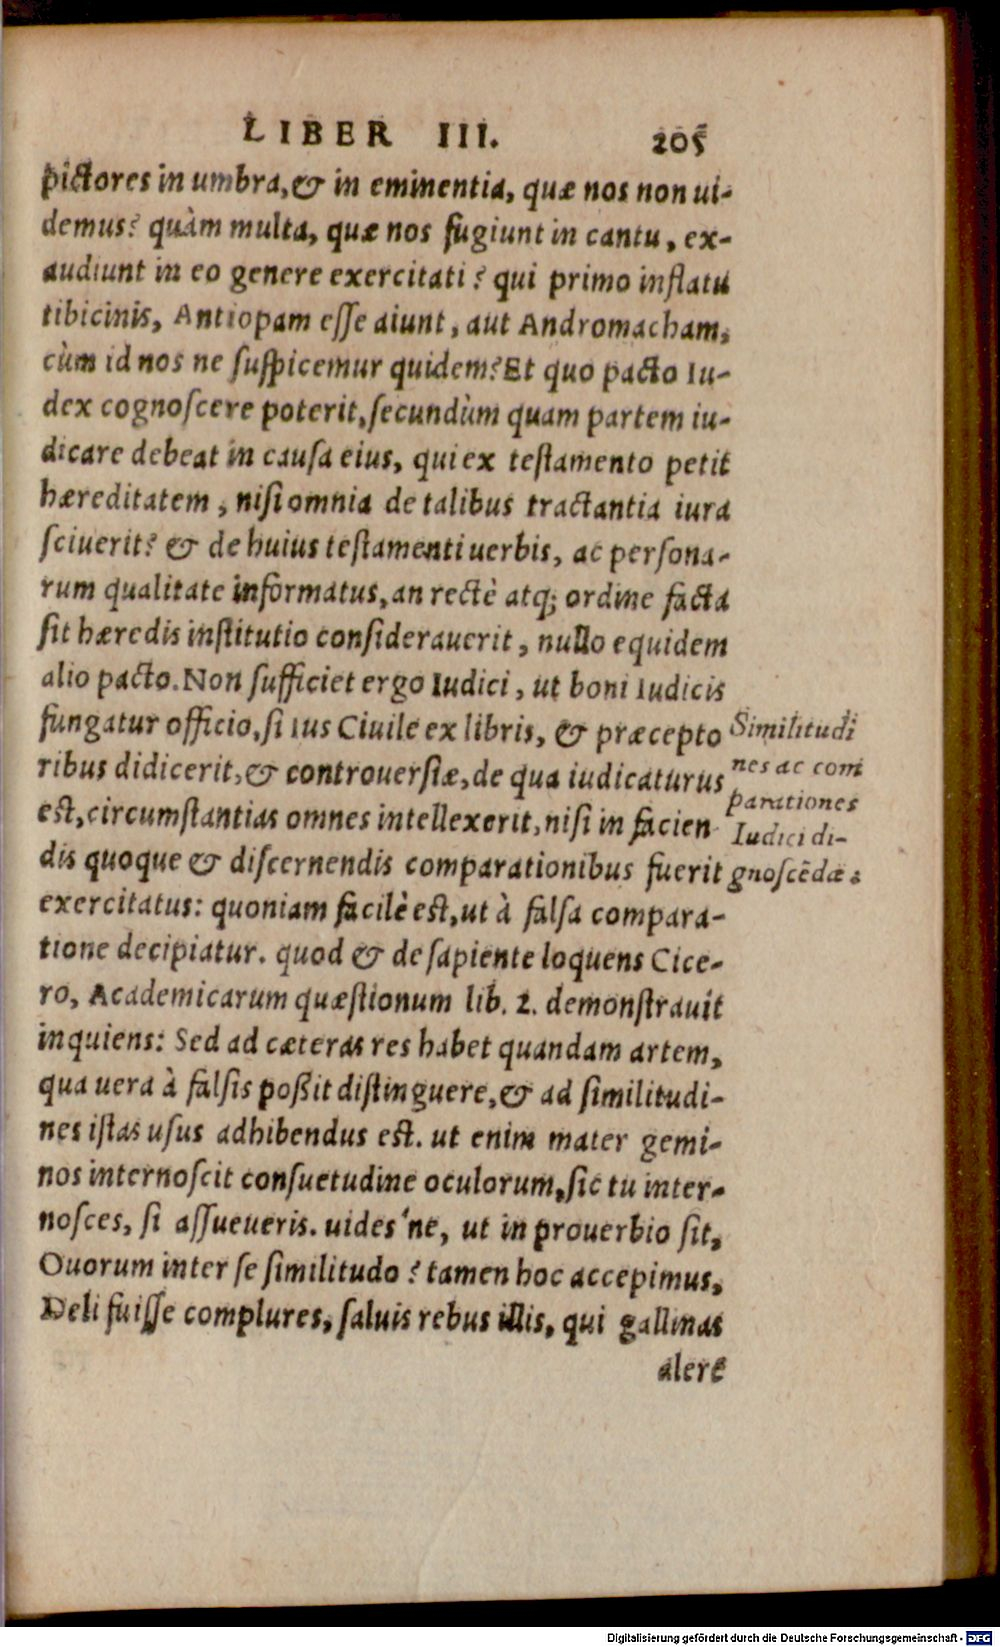 LIBER III. 205
pictores in umbra, & in eminentia, quæ nos non ui-
demus? quàm multa, quæ nos fugiunt in cantu, ex-
audiunt in eo genere exercitati? qui primo inflatu
tibicinis, Antiopam eſſe aiunt, aut Andromacham,
cùm id nos ne ſuſpicemur quidem? Et quo pacto Iu-
dex cognoſcere poterit, ſecundùm quam partem iu-
dicare debeat in cauſa eius, qui ex teſtamento petit
hæreditatem, niſi omnia de talibus tractantia iura
ſciuerit? & de huius teſtamenti uerbis, ac perſona-
rum qualitate informatus, an rectè atq; ordine facta
ſit hæredis inſtitutio conſiderauerit, nullo equidem
alio pacto. Non ſufficiet ergo Iudici, ut boni Iudicis
fungatur officio, ſi Ius Ciuile ex libris, & præcepto
ribus didicerit, & controuerſiæ, de qua iudicaturus
eſt, circumſtantias omnes intellexerit, niſi in facien
dis quoque & diſcernendis comparationibus fuerit
exercitatus: quoniam facilè eſt, ut à falſa compara-
tione decipiatur. quod & de ſapiente loquens Cice-
ro, Academicarum quæſtionum lib. 2. demonſtrauit
inquiens: Sed ad cæteras res habet quandam artem,
qua uera à falſis poßit diſtinguere, & ad ſimilitudi-
nes iſtas uſus adhibendus eſt. ut enim mater gemi-
nos internoſcit conſuetudine oculorum, ſic tu inter-
noſces, ſi aſſueueris. uides'ne, ut in prouerbio ſit,
Ouorum inter ſe ſimilitudo? tamen hoc accepimus,
Deli fuiſſe complures, ſaluis rebus illis, qui gallinas
alere
Similitudi
nes ac com
parationes
Iudici di-
gnoſcēdæ.
Digitalisierung gefördert durch die Deutsche Forschungsgemeinschaft - DFG